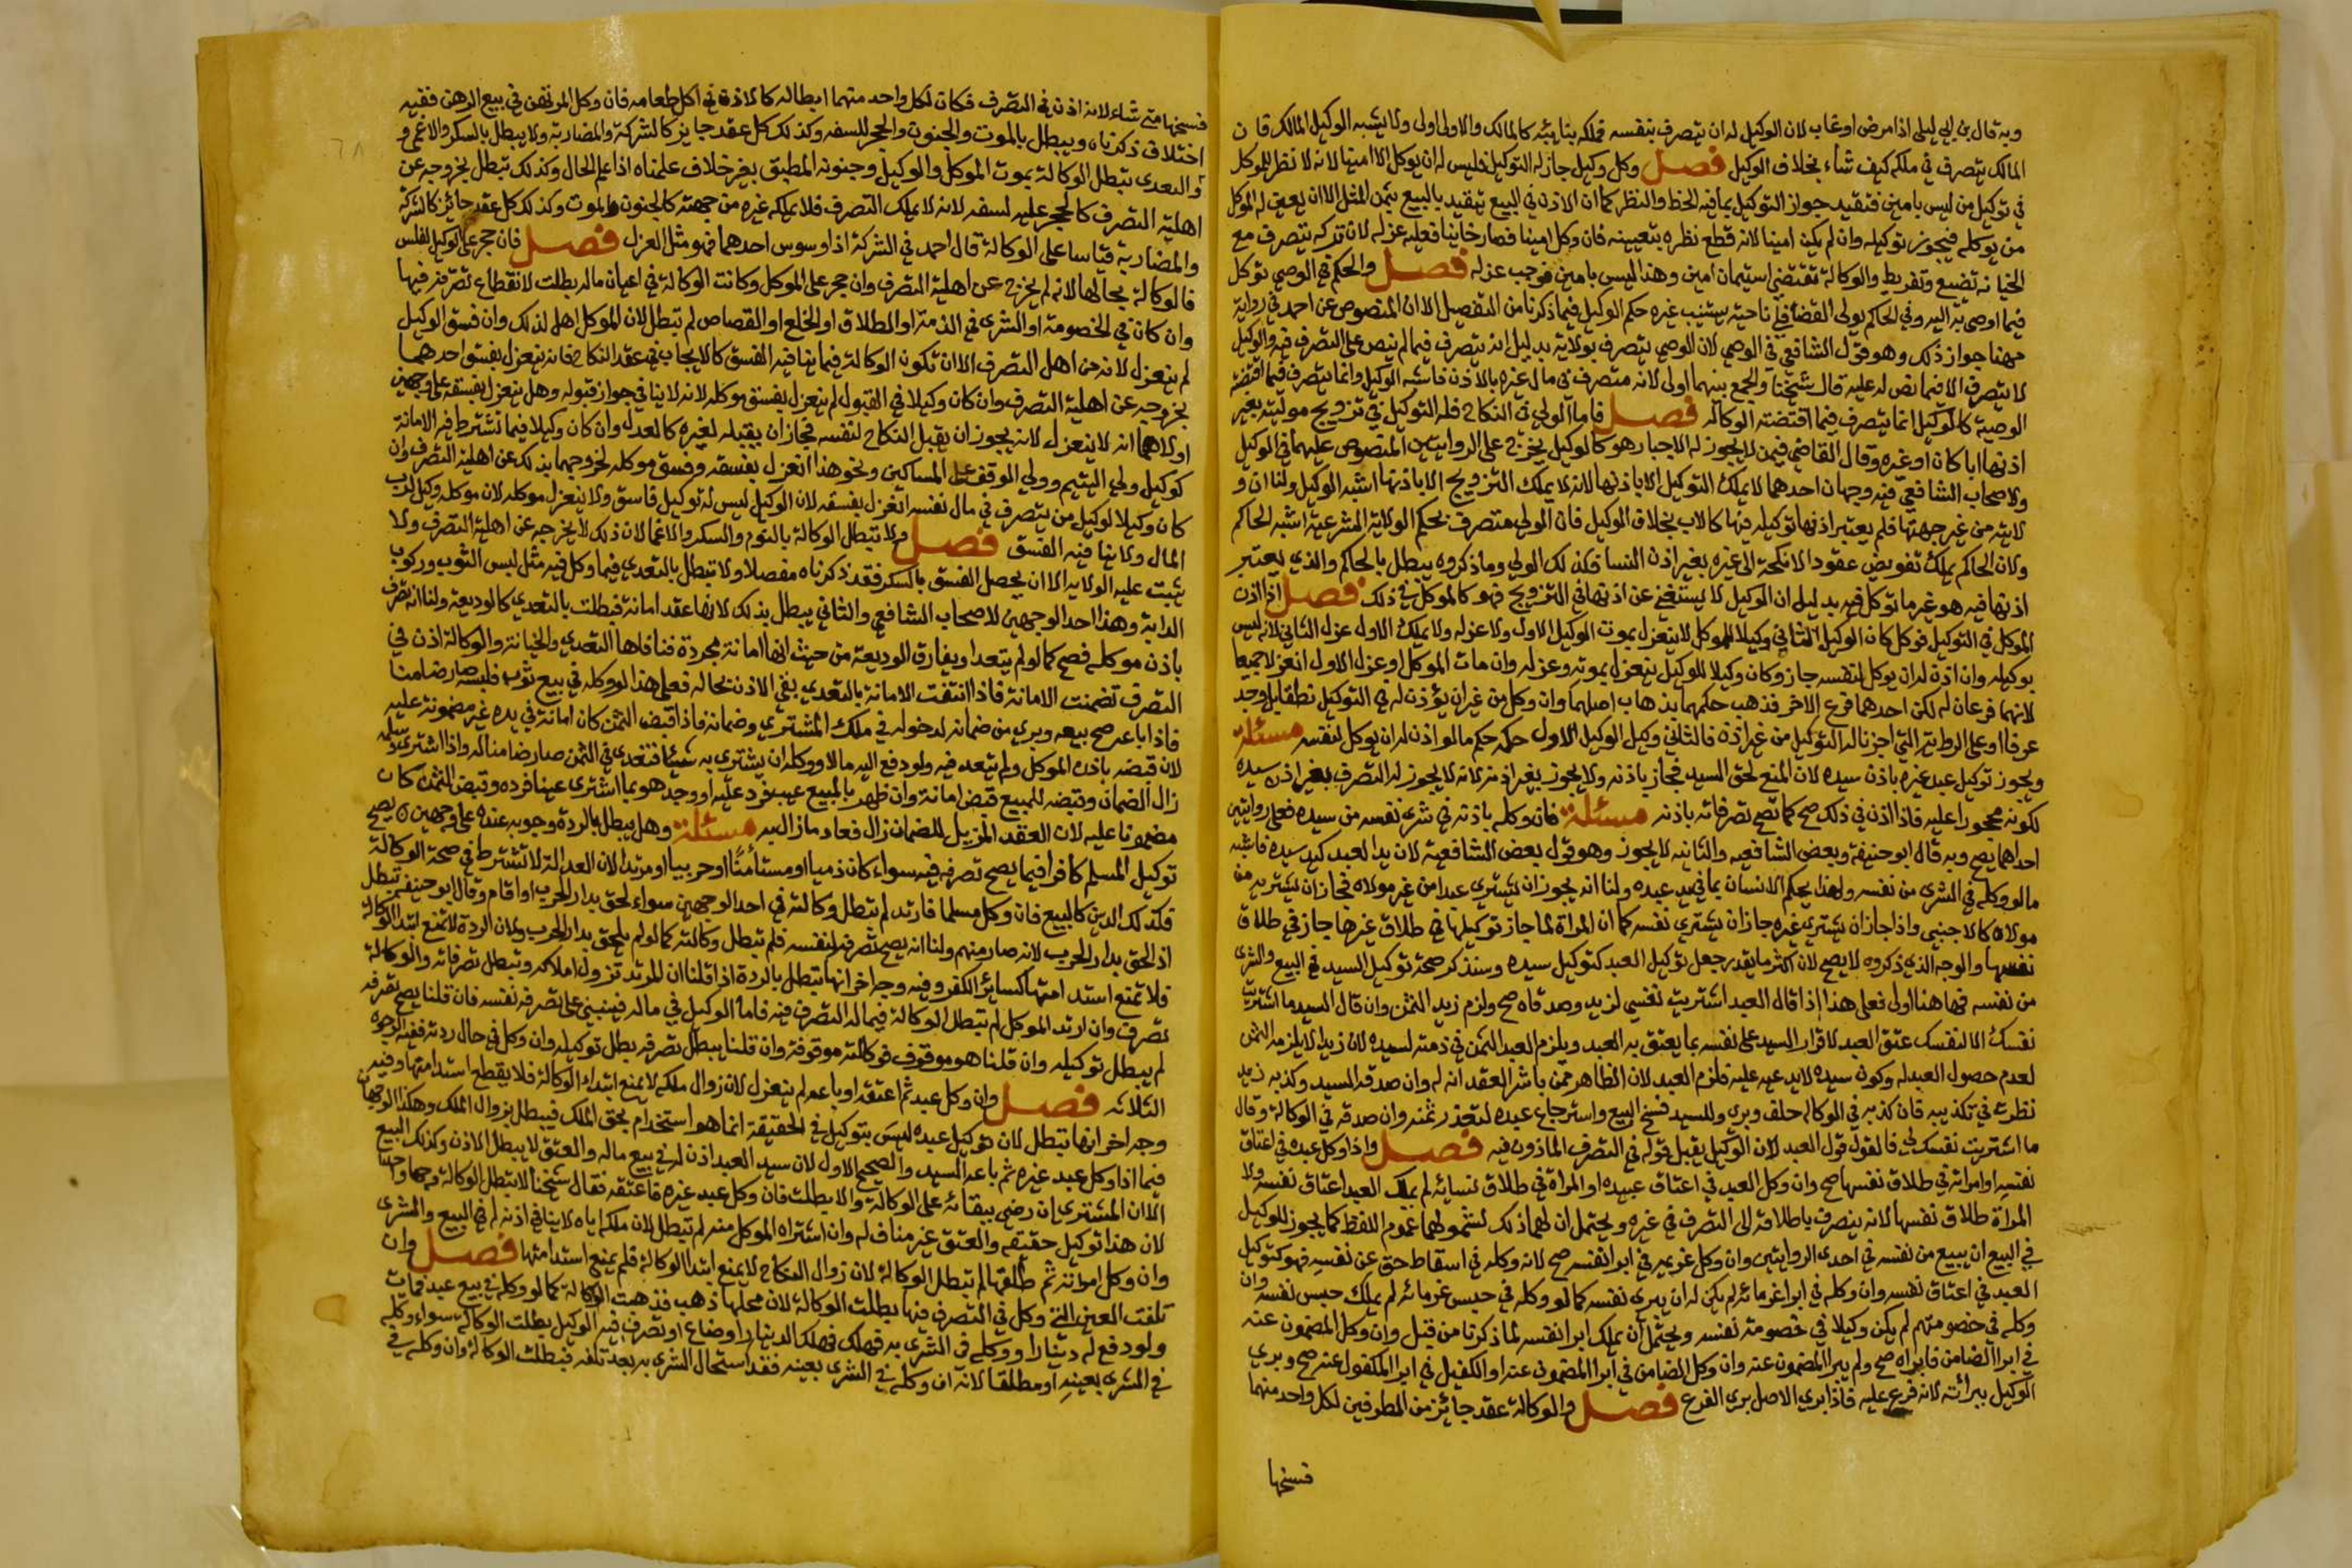 وبه قال بن ابي ليلى اذا مرض او غاب لان الوكيل له ان يتصرف بنفسه فملكه بنايبه كالمالك والاولى اولى ولا يشبه الوكيل المالك فان
المالك يتصرف في ملكه كيف شاء بخلاف الوكيل فصل وكل وكيل جاز له التوكيل فليس له ان يوكل الا امينا لانه لا نظر للموكل
في توكيل من ليس بامين فتقيد جواز التوكيل بما فيه الحظ والنظر كما ان الاذن في البيع يتقيد بالبيع بثمن المثل الا ان يعين له الموكل
من يوكله فيجوز توكيله وان لم يكن امينا لانه قطع نظره بتعيينه فان وكل امينا فصار خاينا فعليه عزله لان تركه يتصرف مع
الخيانه تضييع وتفريط والوكالة تقتضي استيمان امين وهذا ليس بامين فوجب عزله فصل والحكم في الوصي توكل
فيما اوصي به اليه وفي الحاكم يولى القضا في ناحية يستنيب غيره حكم الوكيل فيما ذكرنا من التفصيل الا ان المنصوص عن احمد في رواية
مهنا جواز ذلك وهو قول الشافعي في الوصي لان الوصي يتصرف بولاية بدليل انه يتصرف فيما لم ينص على التصرف فيه والوكيل
لا يتصرف الا فيما نص له عليه قال شيخنا والجمع بينهما اولى لانه متصرف في مال غيره بالاذن فاشبه الوكيل وانما يتصرف فيما اقتضته
الوصية كالوكيل انما يتصرف فيما اقتضته الوكالة فصل فاما الولي في النكاح فله التوكيل في تزويج موليته بغير
اذنها ابا كان او غيره وقال القاضي فيمن لا يجوز له الاجبار هو كالوكيل يخرج على الروايتين المنصوص عليهما في الوكيل
ولاصحاب الشافعي فيه وجهان احدهما لا يملك التوكيل الا باذنها لانه لا يملك التزويج الا باذنها اشبه الوكيل ولنا ان و
لايته من غير جهتها فلم يعتبر اذنها توكيله فيها كالاب بخلاف الوكيل فان الولي متصرف بحكم الولاية الشرعية اشبه الحاكم
ولان الحاكم يملك تفويض عقود الانكحة الى غيره بغير اذن النسا فكذلك الولي وما ذكروه يبطل بالحاكم والذي يعتبر
اذنها فيه هو غير ما توكل فيه بدليل ان الوكيل لا يستغني عن اذنها في التزويج فهو كالموكل في ذلك فصل اذا اذن
الموكل في التوكيل فوكل كان الوكيل الثاني وكيلا للموكل لا ينعزل بموت الوكيل الاول ولا عزله ولا يملك الاول عزل الثاني لانه ليس
بوكيله وان اذن له ان يوكل لنفسه جاز وكان وكيلا للوكيل ينعزل بموته وعزله وان مات الموكل او عزل الاول انعزلا جميعا
لانهما فرعان له لكن احدهما فرع الاخر فذهب حكمهما بذهاب اصلهما وان وكل من غير ان يؤذن له في التوكيل نطقا بل وجد
عرفا او على الرواية التي اجزنا له التوكيل من غير اذن فالثاني وكيل الوكيل الاول حكمه حكم ما لو اذن له ان يوكل لنفسه مسئلة
ويجوز توكيل عبد غيره باذن سيده لان المنع لحق السيد فجاز باذنه ولا يجوز بغير اذنه لانه لا يجوز له التصرف بغير اذن سيده
لكونه محجورا عليه فاذا اذن في ذلك صح كما تصح تصرفاته باذنه مسئلة فان وكله باذنه في شرى نفسه من سيده فعلى روايتين
احداهما يصح وبه قال ابو حنيفة وبعض الشافعيه والثانيه لا يجوز وهو قول بعض الشافعية لان يد العبد كيد سيده فاشبه
ما لو وكله في الشرى من نفسه ولهذا يحكم للانسان بما في يد عبده ولنا انه يجوز ان يشتري عبدا من غير مولاه فجاز ان يشتريه من
مولاه كالاجنبي واذا جاز ان يشتري غيره جاز ان يشتري نفسه كما ان المراة لما جاز توكيلها في طلاق غيرها جاز في طلاق
نفسها والوجه الذي ذكروه لا يصح لان اكثر ما يقدر جعل توكيل العبد كتوكيل سيده وسنذكر صحة توكيل السيد في البيع والشرى
من نفسه فهاهنا اولى فعلى هذا اذا قال العبد اشتريت نفسي لزيد وصدقاه صح ولزم زيد الثمن وان قال السيد ما اشتريت
نفسك الا لنفسك عتق العبد لاقرار السيد على نفسه بما يعتق به العبد ويلزم العبد الثمن في ذمته لسيده لان زيدا لا يلزمه الثمن
لعدم حصول العبد له وكون سيده لا يدعيه عليه فلزم العبد لان الظاهر ممن باشر العقد انه له وان صدقه السيد وكذبه زيد
نظرت في تكذيبه فان كذبه في الوكالة حلف وبرى وللسيد فسخ البيع واسترجاع عبده لتعذر ثمنه وان صدقه في الوكالة وقال
ما اشتريت نفسك لي فالقول قول العبد لان الوكيل يقبل قوله في التصرف الماذون فيه فصل واذا وكل عبده في اعتاق
نفسه او امراته في طلاق نفسها صح وان وكل العبد في اعتاق عبيده او المراة في طلاق نسائه لم يملك العبد اعتاق نفسه ولا
المراة طلاق نفسها لانه ينصرف باطلاقه الى التصرف في غيره ويحتمل ان لهما ذلك لشمولهما عموم اللفظ كما يجوز للوكيل
في البيع ان يبيع من نفسه في احدى الروايتين وان وكل غريمه في ابرا نفسه صح لانه وكله في اسقاط حق عن نفسه فهو كتوكيل
العبد في اعتاق نفسه وان وكله في ابرا غرمائه لم يكن له ان يبرى نفسه كما لو وكله في حبس غرمائه لم يملك حبس نفسه وان
وكله في خصومتهم لم يكن وكيلا في خصومة نفسه ويحتمل ان يملك ابرا نفسه لما ذكرنا من قبل وان وكل المضمون عنه
في ابرا الضامن فابراه صح ولم يبرا المضمون عنه وان وكل الضامن في ابرا المضمون عنه او الكفيل في ابرا المكفول عنه صح وبري
الوكيل ببرائته لانه فرع عليه فاذا برى الاصل برى الفرع فصل والوكالة عقد جائز من الطرفين لكل واحد منهما
فسخها
فسخها متى شاء لانه اذن في التصرف فكان لكل واحد منهما ابطاله كالاذن في اكل طعامه فان وكل المرتهن في بيع الرهن ففيه
اختلاف ذكرناه ويبطل بالموت والجنون والحجر للسفه وكذلك كل عقد جايز كالشركة والمضاربة ولا يبطل بالسكر والاغمى و
والتعدى تبطل الوكالة بموت الموكل والوكيل وجنونه المطبق بغير خلاف علمناه اذا علم الحال وكذلك تبطل بخروجه عن
اهلية التصرف كالحجر عليه لسفه لانه لا يملك التصرف فلا يملكه غيره من جهته كالجنون والموت وكذلك كل عقد جائز كالشركة
والمضاربة قياسا على الوكالة قال احمد في الشركة اذا وسوس احدهما فهو مثل العزل فصل فان حجر على الوكيل لفلس
فالوكالة بحالها لانه لم يخرج عن اهلية التصرف وان حجر على الموكل وكانت الوكالة في اعيان ماله بطلت لانقطاع تصرفه فيها
وان كان في الخصومة او الشرى في الذمة او الطلاق او الخلع او القصاص لم تبطل لان الموكل اهل لذلك وان فسق الوكيل
لم ينعزل لانه من اهل التصرف الا ان تكون الوكالة فيما ينافيه الفسق كالايجاب في عقد النكاح فانه ينعزل بفسق احدهما
بخروجه عن اهلية التصرف وان كان وكيلا في القبول لم ينعزل بفسق موكله لانه لا ينافي جواز قبوله وهل ينعزل بفسقه على وجهين
اولاهما انه لا ينعزل لانه يجوز ان يقبل النكاح لنفسه فجاز ان يقبله لغيره كالعدل وان كان وكيلا فيما تشترط فيه الامانة
كوكيل ولي اليتيم وولي الوقف على المساكين ونحو هذا انعزل بفسقه وفسق موكله لخروجهما بذلك عن اهلية التصرف وان
كان وكيلا لوكيل من يتصرف في مال نفسه انعزل بفسقه لان الوكيل ليس له توكيل فاسق ولا ينعزل موكله لان موكله وكيل لرب
المال ولا ينافيه الفسق فصل ولا تبطل الوكالة بالنوم والسكر والاغما لان ذلك لا يخرجه عن اهلية التصرف ولا
تثبت عليه الولايه الا ان يحصل الفسق بالسكر فقد ذكرناه مفصلا ولا تبطل بالتعدي فيما وكل فيه مثل لبس الثوب وركوب
الدابة وهذا احد الوجهين لاصحاب الشافعي والثاني يبطل بذلك لانها عقد امانة فبطلت بالتعدي كالوديعة ولنا انه تصرف
باذن موكله فصح كما لو لم يتعد ويفارق الوديعة من حيث انها امانة مجردة فنافاها التعدي والخيانة والوكالة اذن في
التصرف تضمنت الامانة فاذا انتفت الامانة بالتعدي بقي الاذن بحاله فعلى هذا لو وكله في بيع ثوب فلبسه صار ضامنا
فاذا باعه صح بيعه وبري من ضمانه لدخوله في ملك المشتري وضمانه فاذا قبض الثمن كان امانة في يده غير مضمونة عليه
لان قبضه باذن الموكل ولم يتعد فيه ولو دفع اليه مالا ووكله ان يشتري به شيئا فتعدى في الثمن صار ضامنا له واذا اشترى وسلمه
زال الضمان وقبضه للمبيع قبض امانة وان ظهر بالمبيع عيب فرد عليه او وجد هو بما اشترى عيبا فرده وقبض الثمن كان
مضمونا عليه لان العقد المزيل للضمان زال فعاد ما زال به مسئلة وهل يبطل بالردة وجوبه عنده على وجهين يصح
توكيل المسلم كافرا فيما يصح تصرفه فيه سواء كان ذميا او مستأمنا او حربيا او مرتدا لان العدالة لا تشترط في صحة الوكالة
فكذلك الدين كالبيع فان وكل مسلما فارتد لم تبطل وكالته في احد الوجهين سواء لحق بدار الحرب او اقام وقال ابو حنيفه تبطل
اذا لحق بدار الحرب لانه صار منهم ولنا انه يصح تصرفه لنفسه فلم تبطل وكالته كما لو لم يلحق بدار الحرب ولان الردة لا تمنع ابتدا الوكالة
فلا تمنع استدامتها كسائر الكفر وفيه وجه اخر انها تبطل بالردة اذا قلنا ان المرتد تزول املاكه وتبطل تصرفاته والوكالة
تصرف وان ارتد الموكل لم تبطل الوكالة فيما له التصرف فيه فاما الوكيل في ماله فينبني على تصرفه نفسه فان قلنا يصح تصرفه
لم يبطل توكيله وان قلنا هو موقوف فوكالته موقوفة وان قلنا يبطل تصرفه بطل توكيله وان وكل في حال ردته ففيه الوجوه
الثلاثه فصل وان وكل عبده ثم اعتقه او باعه لم ينعزل لان زوال ملكه لا يمنع ابتداء الوكالة فلا يقطع استدامتها وفيه
وجه اخر انها تبطل لان توكيل عبده ليس بتوكيل في الحقيقة انما هو استخدام بحق الملك فيبطل بزوال الملك وهكذا الوجهان
فيما اذا وكل عبد غيره ثم باعه السيد والصحيح الاول لان سيد العبد اذن له في بيع ماله والعتق لا يبطل الاذن وكذلك البيع
الا ان المشتري ان رضي ببقائه على الوكالة والا بطلت فان وكل عبد غيره فاعتقه فقال شيخنا لا تبطل الوكالة وجها واحدا
لان هذا توكيل حقيقه والعتق غير مناف له وان اشتراه الموكل منه لم تبطل لان ملكه اياه لا ينافي اذنه له في البيع والشرى
وان وكل امراته ثم طلقها لم تبطل الوكالة لان زوال النكاح لا يمنع ابتدا الوكالة فلم يمنع استدامتها فصل وان
تلفت العين التي وكل في التصرف فيها بطلت الوكالة لان محلها ذهب فذهبت الوكالة كما لو وكله في بيع عبد فمات
ولو دفع له دينارا ووكله في الشرى به فهلك فهلك الدينار او ضاع او تصرف فيه الوكيل بطلت الوكالة سواء وكله
في الشرى بعينه او مطلقا لانه ان وكله في الشرى بعينه فقد استحال الشرى به بعد تلفه فبطلت الوكالة وان وكله في